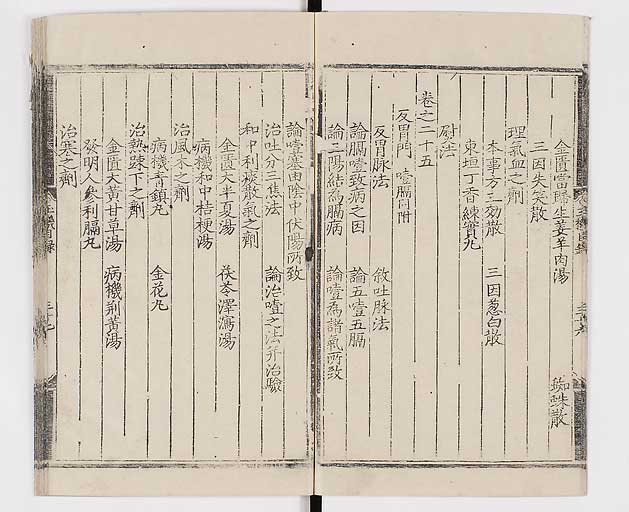 金匱當歸生姜羊肉湯
三因失笑散　蜘蛛散
理氣血之劑
本事方三効散　三因葱白散
東垣丁香練實丸
尉法
卷之二十五
反胃門　噎膈同附
反胃脉法　敘吐脉法
論膈噎致病之因　論五噎五膈
論三陽結為膈病　論噎為諸氣所致
論噎塞由陰中伏陽所致
治吐分三焦法　論治噎之法并治驗
和中利痰散氣之劑
金匱大半夏湯　茯苓澤瀉湯
病機和中桔梗湯
治風木之劑
病機青鎮丸　金花丸
治熱踈下之劑
金匱大黃甘草湯　病機荊黃湯
發明人參利膈丸
治寒之劑